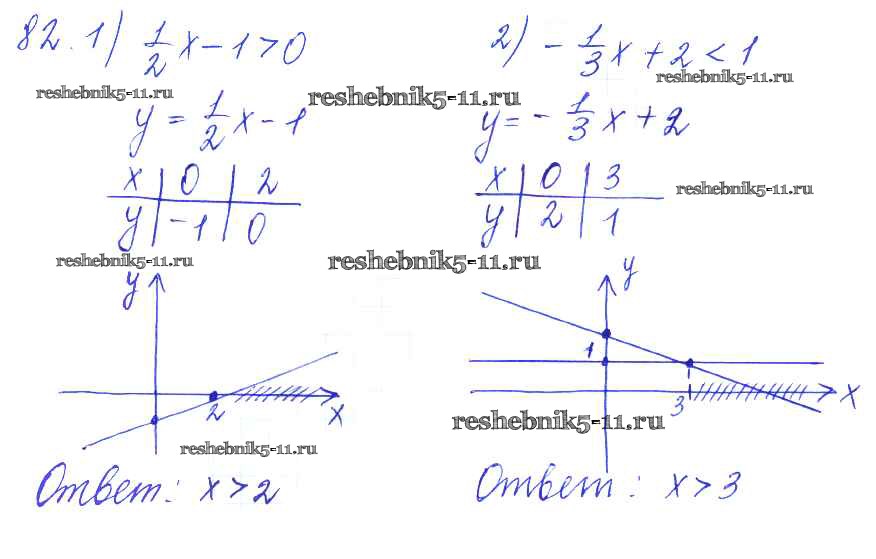 82. 1) 1/2 x - 1 > 0
2) - 1/3 x + 2 < 1
reshebnik5-11.ru
reshebnik5-11.ru
reshebnik5-11.ru
y = 1/2 x - 1
y = - 1/3 x + 2
x | 0 | 2
y | -1 | 0
x | 0 | 3
y | 2 | 1
reshebnik5-11.ru
reshebnik5-11.ru
reshebnik5-11.ru
y
2
x
y
1
3
x
reshebnik5-11.ru
reshebnik5-11.ru
Ответ: x > 2
Ответ: x > 3